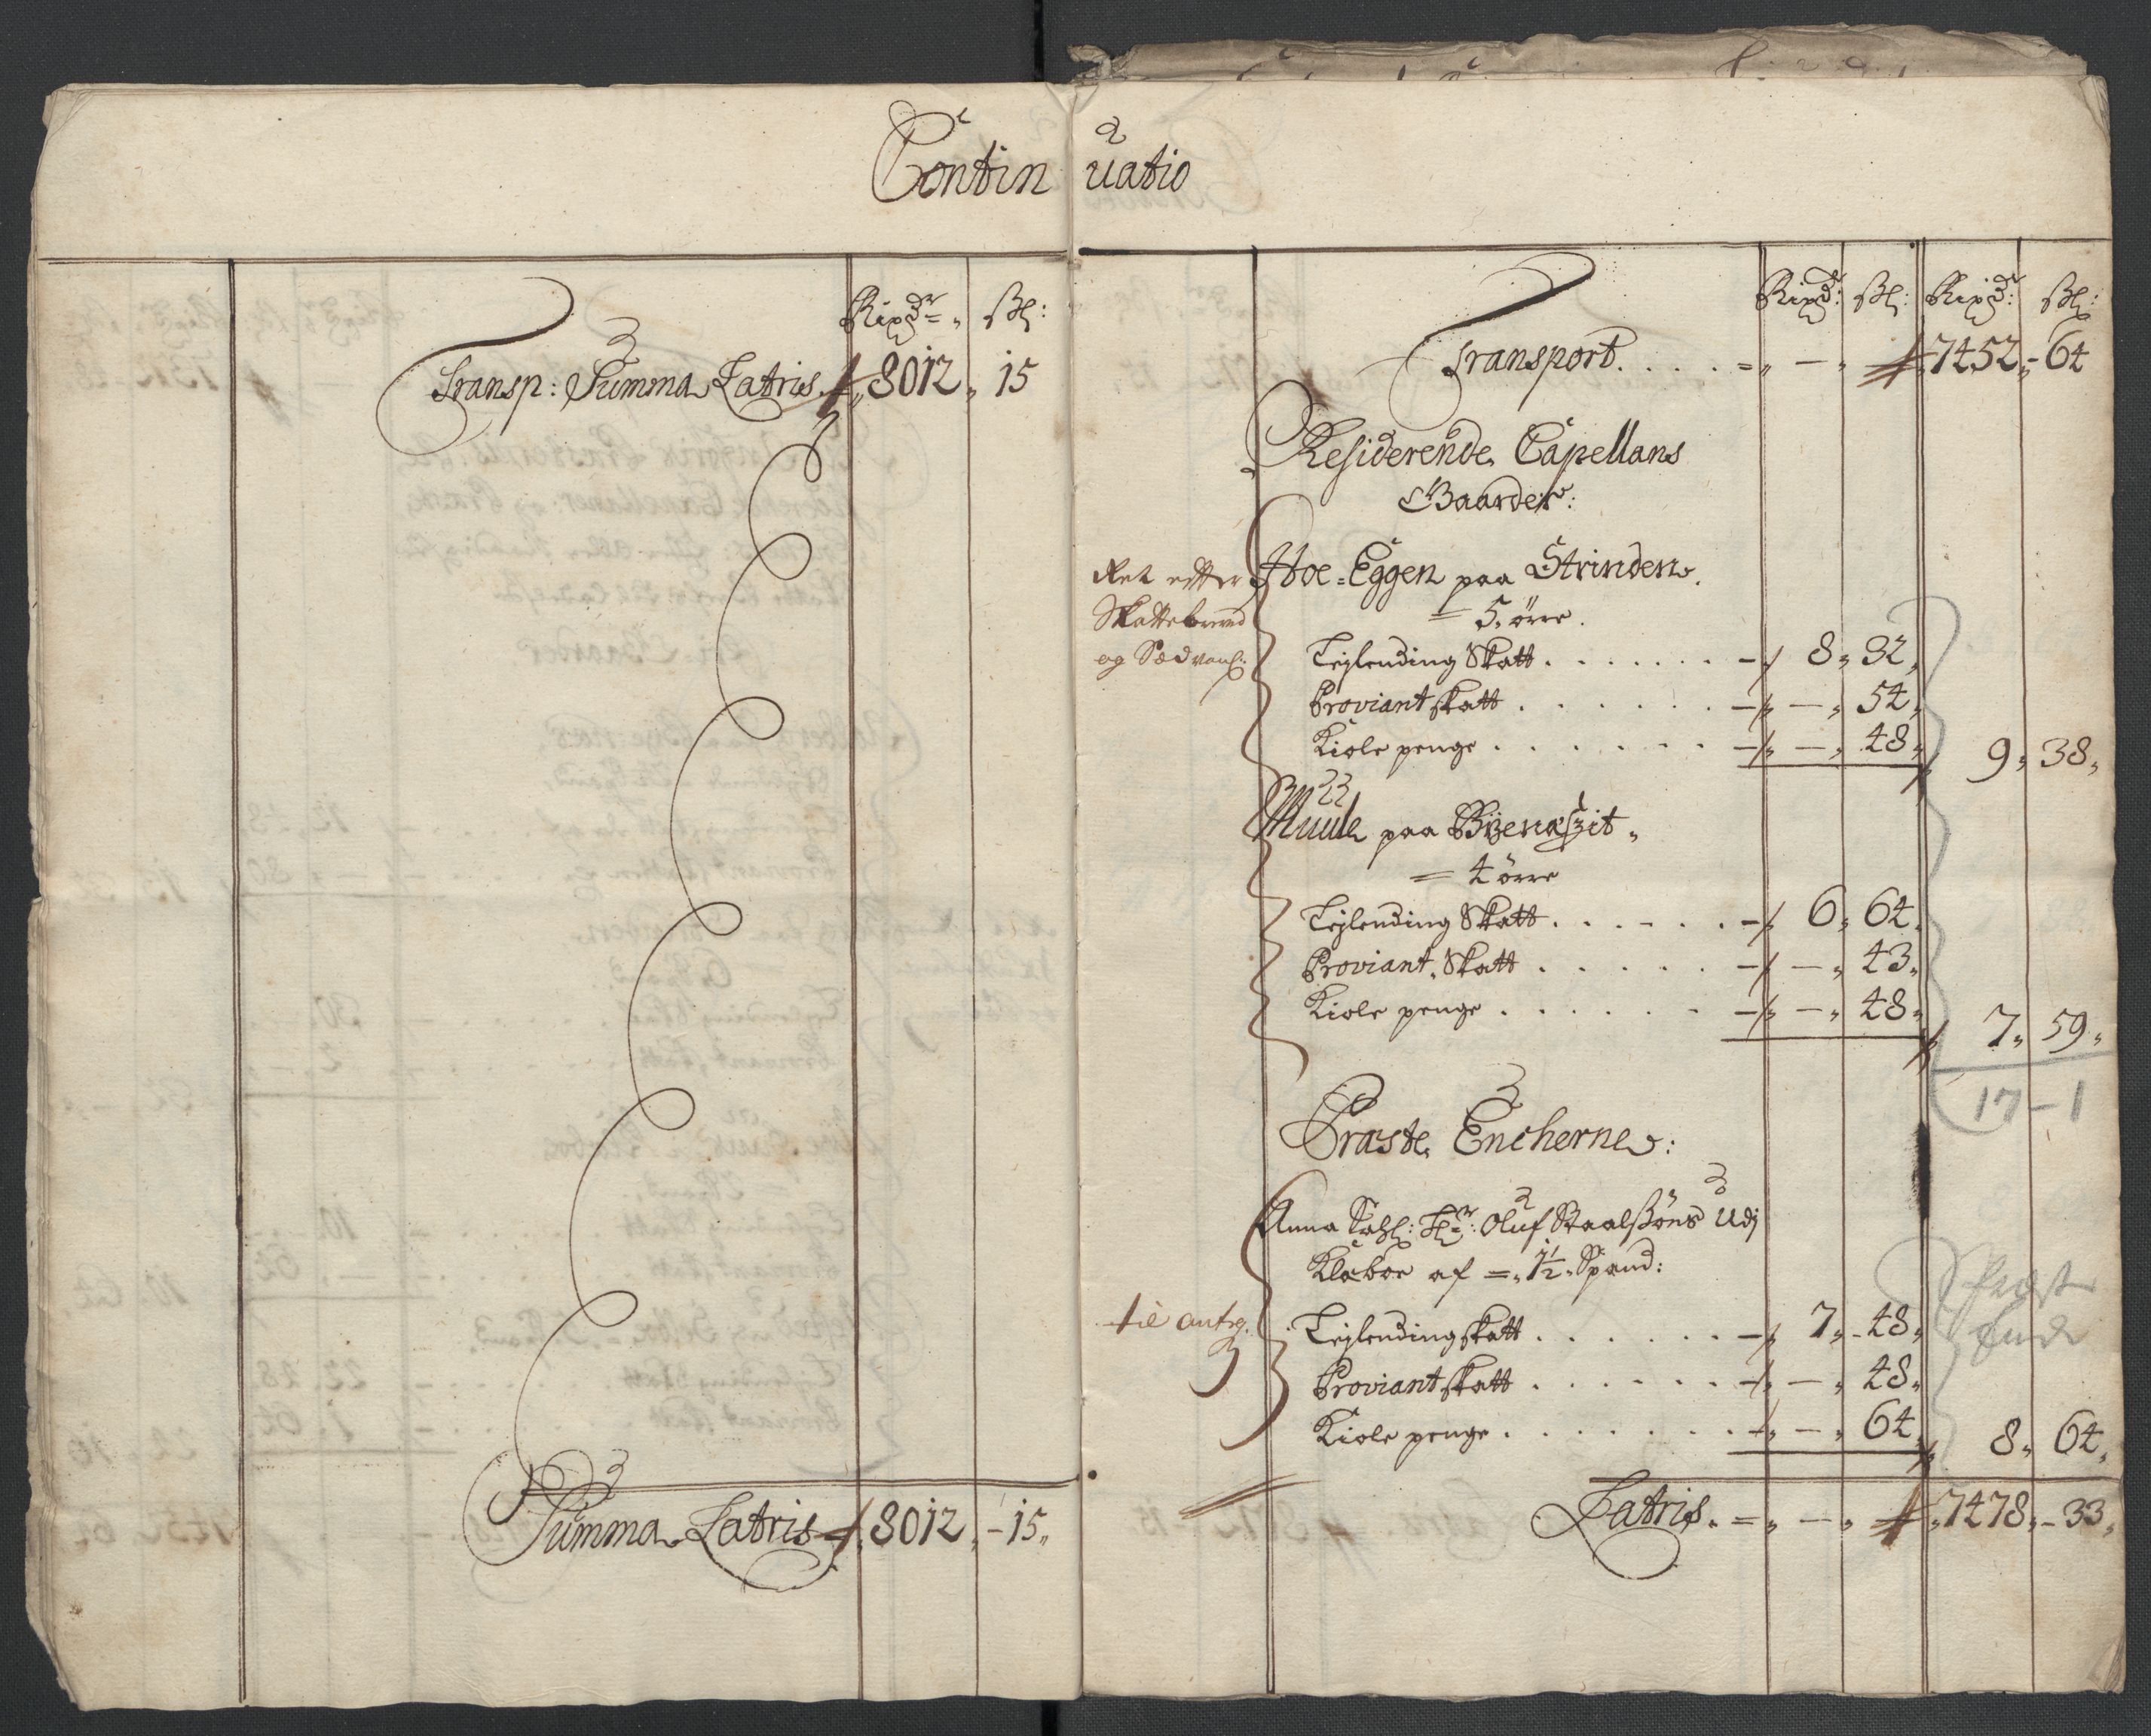 Contin uatio
Rixdr: ß:
Transp: Summa Latris 8012 15
Summa Latris 8012 - 15
Rixd: ß: Rixd: ß:
Transport . . . . = „ — „ 7452 - 64
Residerende Capellans
Gaarder:
Ret efter
Skattebrevet
og Sædvanl:
Hoe-Eggen paa Strinden
= 5 ørre.
Lejlending Skatt . . . . . . . - 8 „ 32
Proviant skatt . . . . . . - „ — „ 54
Kiole penge . . . . . . . - „ — „ 48 „ 9 „ 38 „
Muule paa Byenæßit
= 4 ørre
Lejlending Skatt . . . . . . - 6 „ 64
Proviant Skatt . . . . . - „ — „ 43 „
Kiole penge . . . . . . - „ — „ 48 „ 7 „ 59 „
17 - 1
Præste Encherne:
Anna Sahl: Hr: Oluf Staalsöns Udj
Klæboe af = „ 1½ „ Spand:
til anteg.
Lejlending skatt . . . . . . - 7 „ - 48 „
Proviant skatt . . . . . . - „ — „ 48 „
Kiole penge . . . . . . . - „ — „ 64 „ 8 „ 64 „
Latris . = „ — „ 7478 „ - 33 „